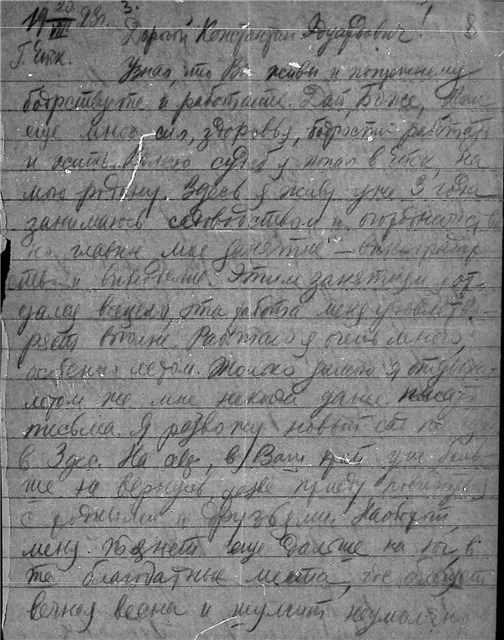 19 20/III 23 г. 3.
Дорогой Константин Эдуардович! 8
Г.
Узнал, что Вы живы и по прежнему
бодрствуете и работаете. Дай, Боже, Вам
еще много сил, здоровья, бодрости работать
и жить. Волею судеб я попал в на
мою родину. Здесь я живу уже 3 года
занимаюсь садоводством и
но главное мое занятие —
ство и виноделие. Этим занятиям от-
дался всецело, эта работа меня удовлетво-
ряет вполне. Работаю я очень много,
особенно летом. Только зимою я отдыхаю
летом же мне некогда даже писать
письма. Я развожу новый сад
в 3 дес. На север, в Ваш край уже боль-
ше не вернусь, разве приеду повидаться
с родными и друзьями. Наоборот,
меня тянет еще дальше на юг, в
те благодатные места, где блещет
вечная весна и шумит неумолчно